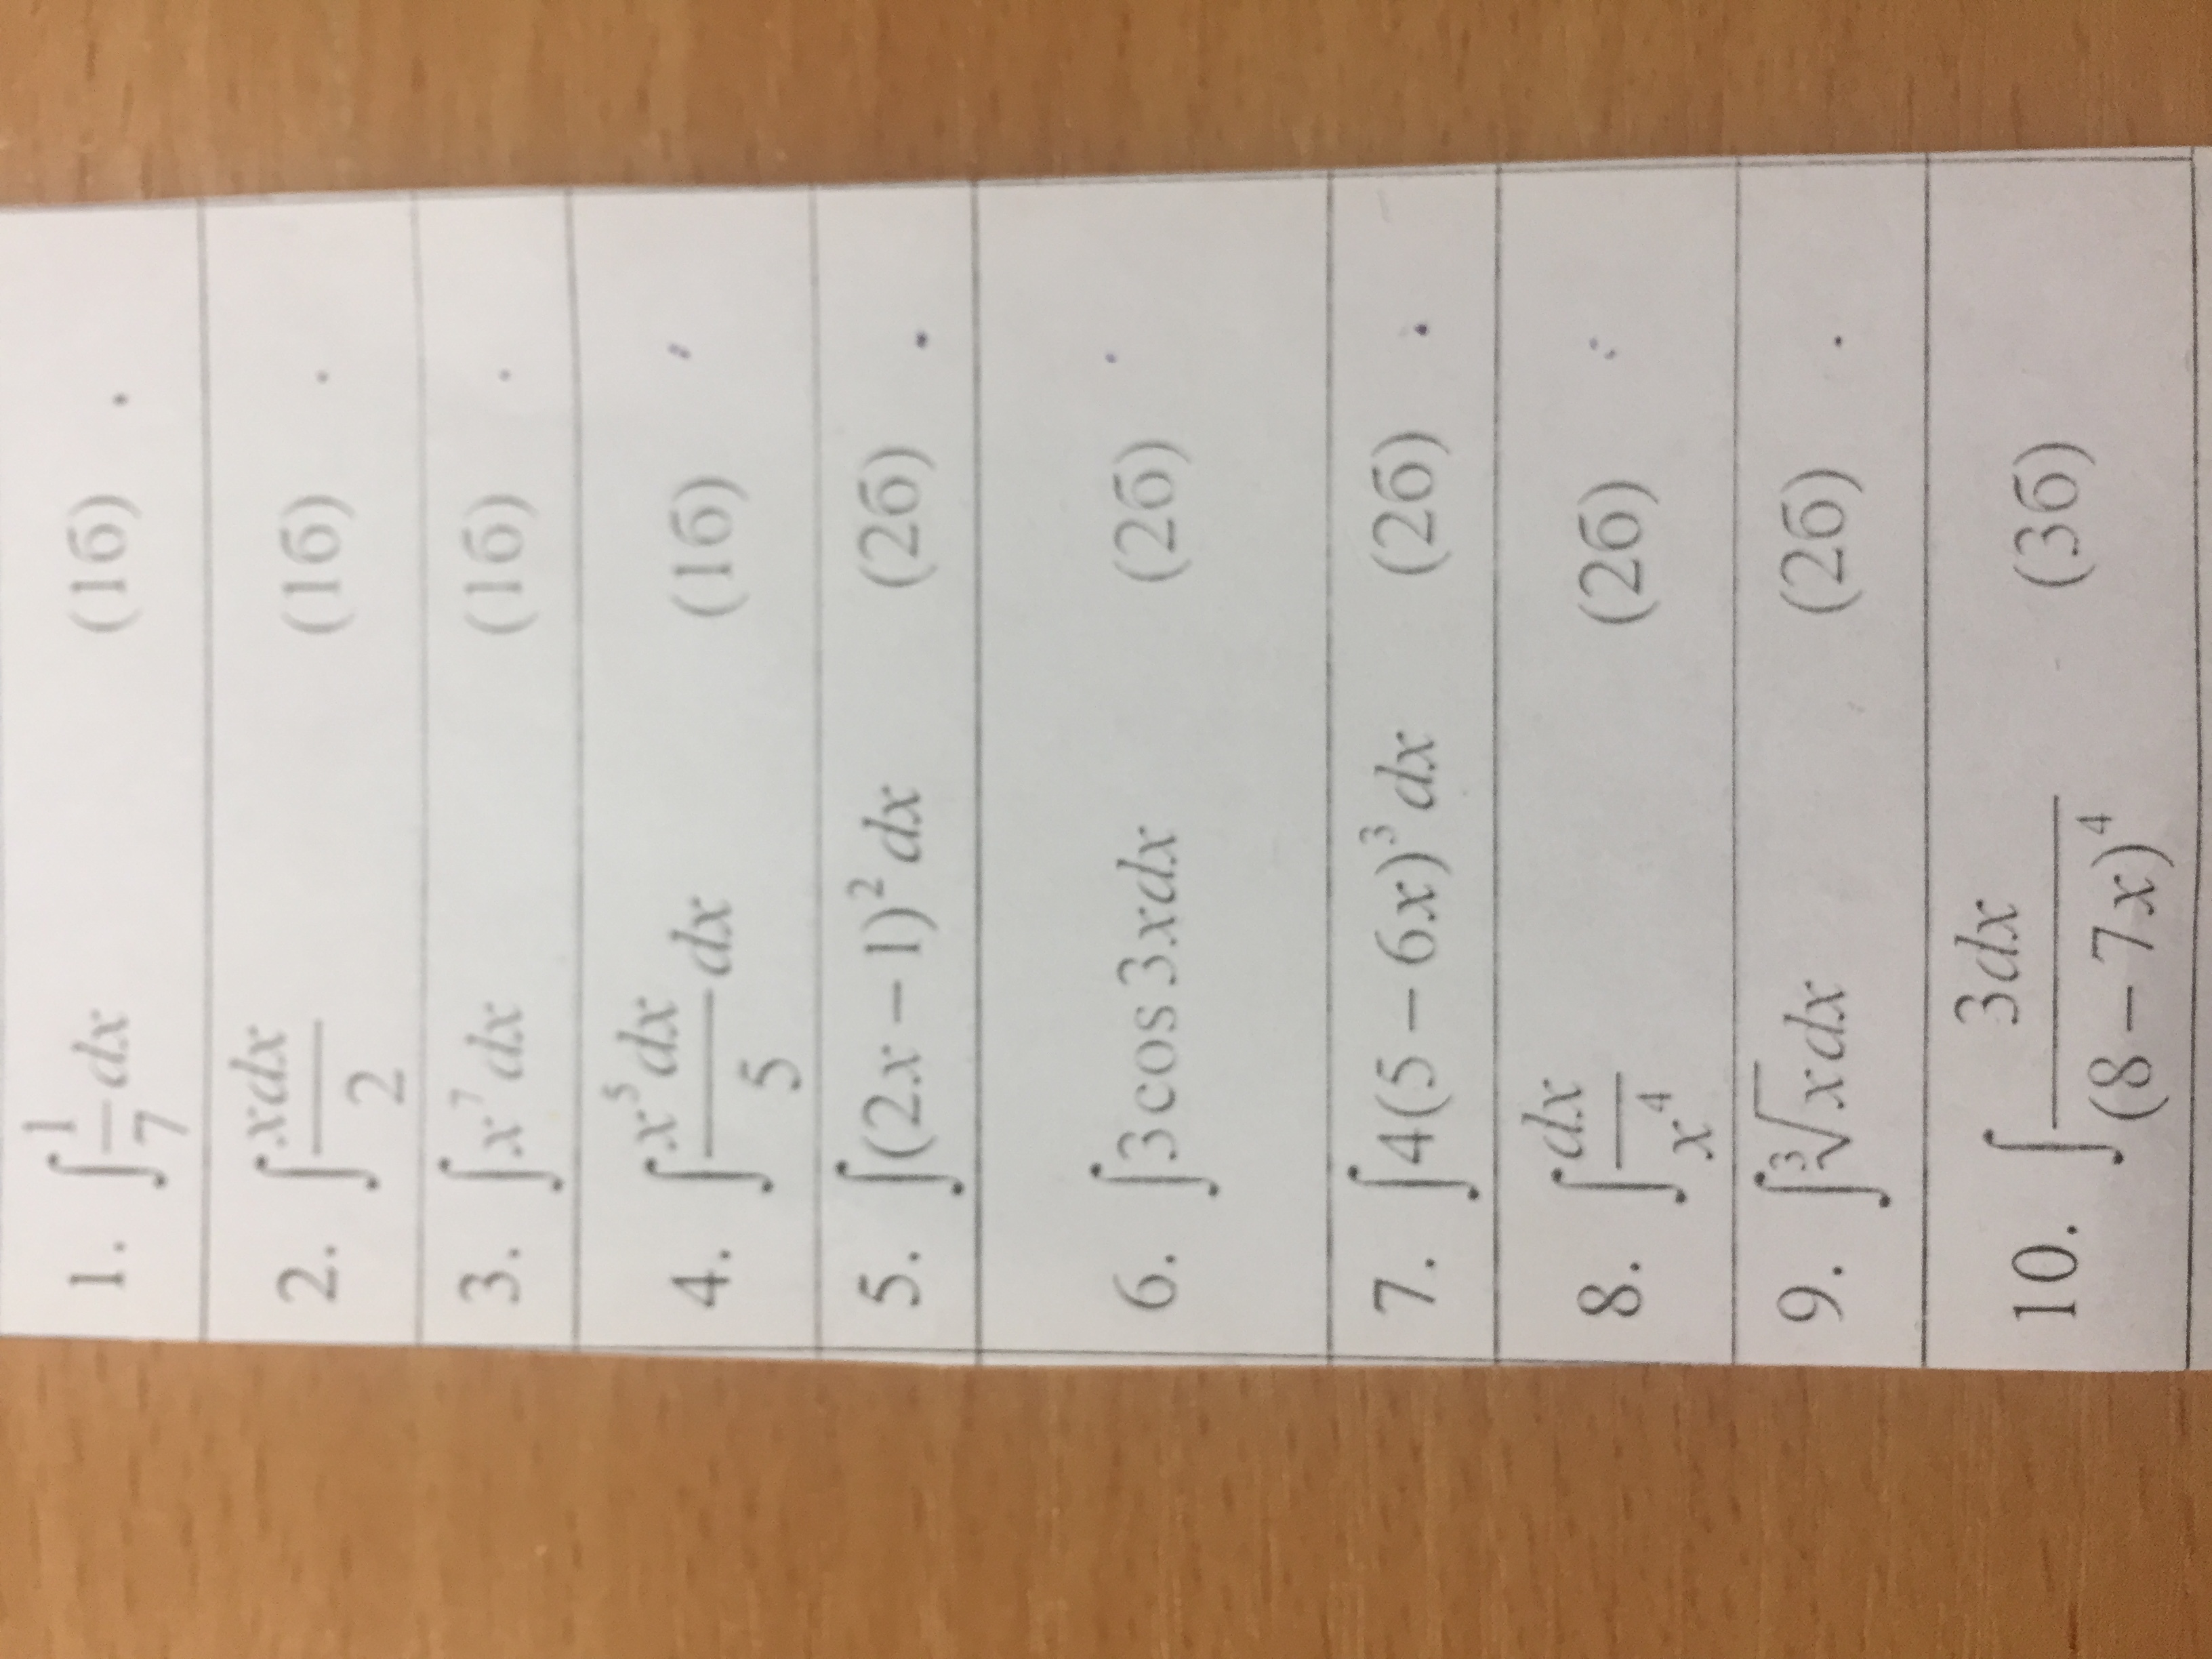 1. ∫ 1/7 dx (1б)
2. ∫ xdx/2 (1б)
3. ∫ x⁷ dx (1б)
4. ∫ x⁵dx/5 dx (1б)
5. ∫ (2x − 1)² dx (2б)
6. ∫ 3 cos 3xdx (2б)
7. ∫ 4(5 − 6x)³ dx (2б)
8. ∫ dx/x⁴ (2б)
9. ∫ ∛x dx (2б)
10. ∫ 3dx/(8 − 7x)⁴ (3б)